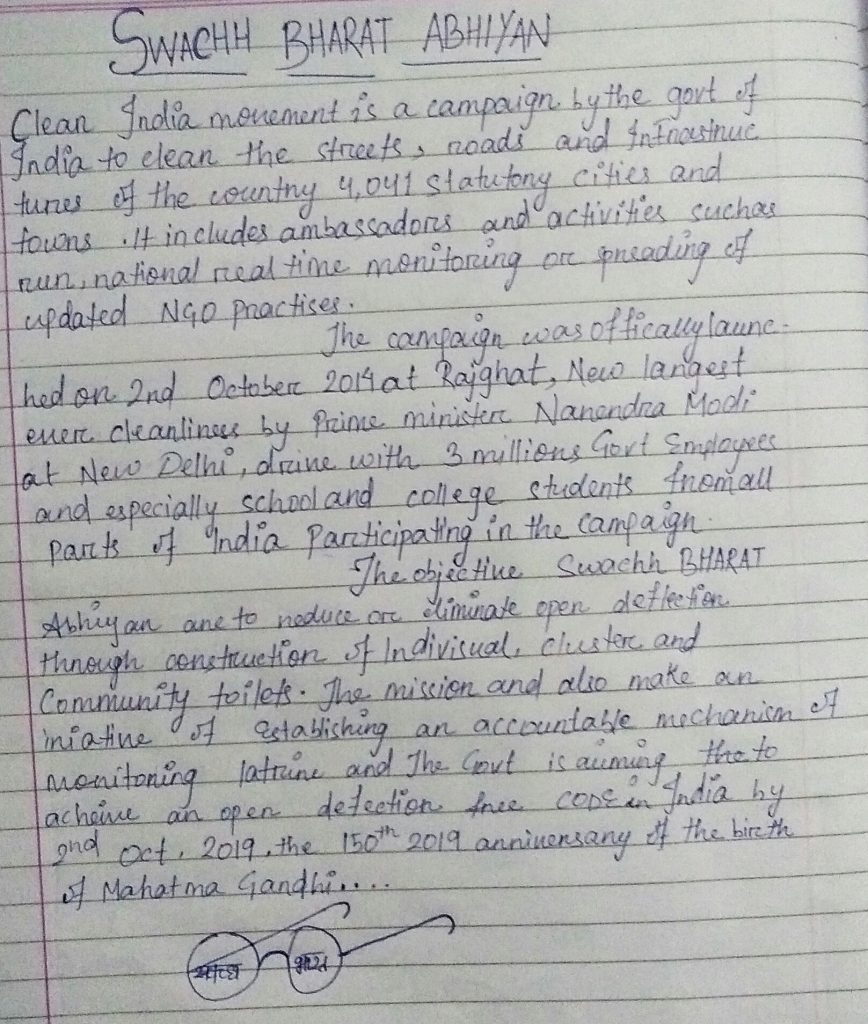 SWACHH BHARAT ABHIYAN
Clean India movement is a campaign by the govt of
India to clean the streets, roads and Infrastruc
tures of the country 4,041 statutory cities and
towns. It includes ambassadors and activities such as
run, national real time monitoring or spreading of
updated NGO practises.
The campaign was offically launc-
hed on 2nd October 2014 at Rajghat, New largest
ever cleanliness by Prime minister Narendra Modi
at New Delhi, drive with 3 millions Govt Employees
and especially school and college students from all
parts of India Participating in the campaign.
The objective Swachh BHARAT
Abhiyan are to reduce or eliminate open deflection
through construction of Indivisual, cluster and
Community toilets. The mission and also make an
iniative of establishing an accountable mechanism of
monitoring latrine and The Govt is aiming the to
acheive an open defection free CODE in India by
2nd Oct, 2019, the 150th 2019 anniversary of the birth
of Mahatma Gandhi....
स्वच्छ भारत